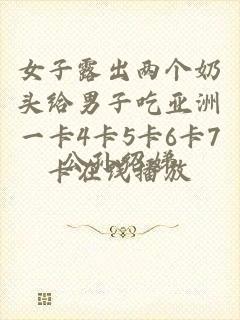 女子露出两个奶
头给男子吃亚洲
一卡4卡5卡6卡7
卡在线播放